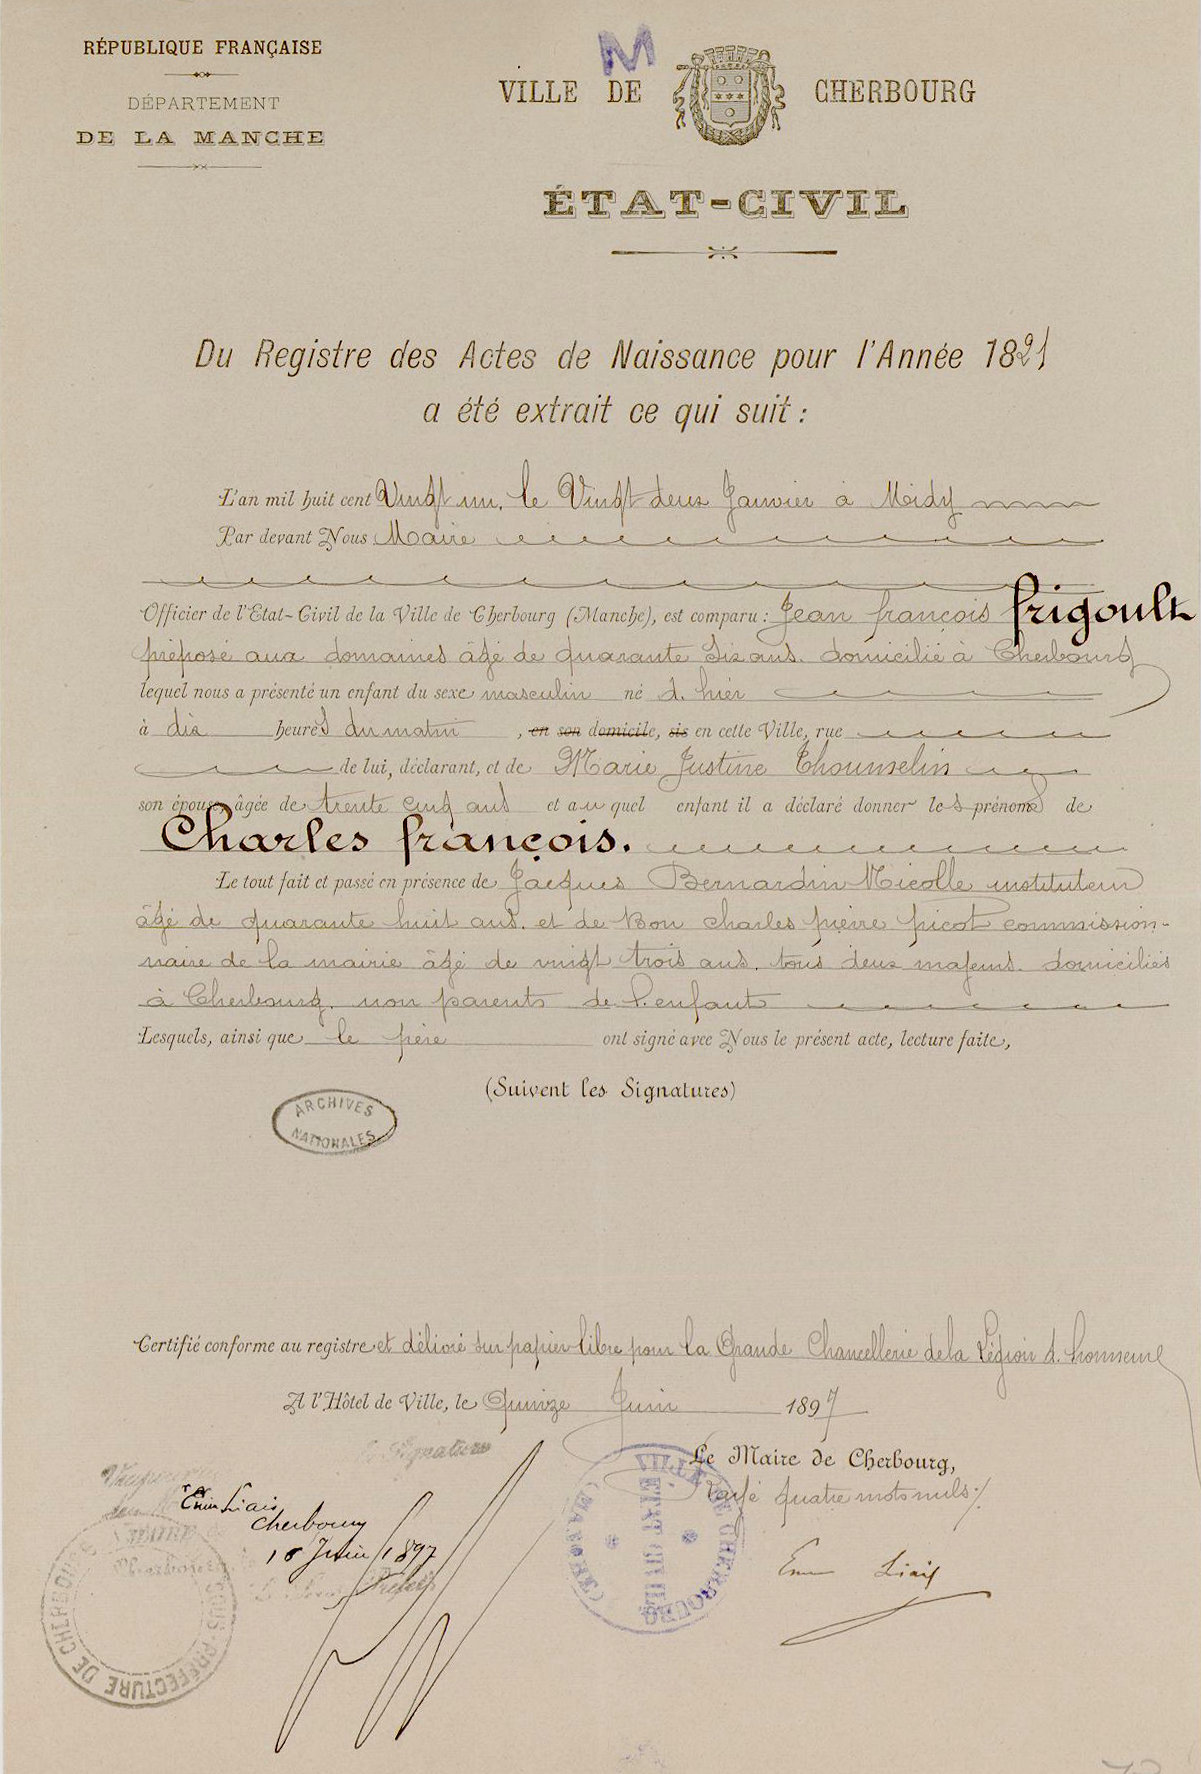 RÉPUBLIQUE FRANÇAISE
DÉPARTEMENT
DE LA MANCHE
M
VILLE DE CHERBOURG
ÉTAT-CIVIL
Du Registre des Actes de Naissance pour l'Année 1821
a été extrait ce qui suit :
L'an mil huit cent Vingt un, le Vingt deux Janvier à Midy
Par devant Nous Maire
Officier de l'Etat-Civil de la Ville de Cherbourg (Manche), est comparu : Jean françois frigoult
préposé aux domaines âgé de quarante Six ans. domicilié à Cherbourg
lequel nous a présenté un enfant du sexe masculin né d'hier
à dix heures du matin , en son domicile, sis en cette Ville, rue
de lui, déclarant, et de Marie Justine Thoumelin
son épouse, âgée de trente cinq ans et au quel enfant il a déclaré donner les prénoms de
Charles françois.
Le tout fait et passé en présence de Jacques Bernardin Nicolle instituteur
âgé de quarante huit ans. et de Bon charles pierre picot commission-
naire de la mairie âgé de vingt trois ans. tous deux majeurs. domiciliés
à Cherbourg. non parents de l'enfant
Lesquels, ainsi que le père ont signé avec Nous le présent acte, lecture faite,
(Suivent les Signatures)
ARCHIVES NATIONALES
Certifié conforme au registre et délivré sur papier libre pour la Grande Chancellerie de la Légion d'honneur
A l'Hôtel de Ville, le Quinze Juin 1897
Le Maire de Cherbourg,
Rayé quatre mots nuls
la Signature
Emm Liais
Cherbourg
16 Juin 1897
Le Sous-Préfet
SOUS-PRÉFECTURE DE CHERBOURG
VILLE DE CHERBOURG (MANCHE)
ÉTAT CIVIL
Emm Liais